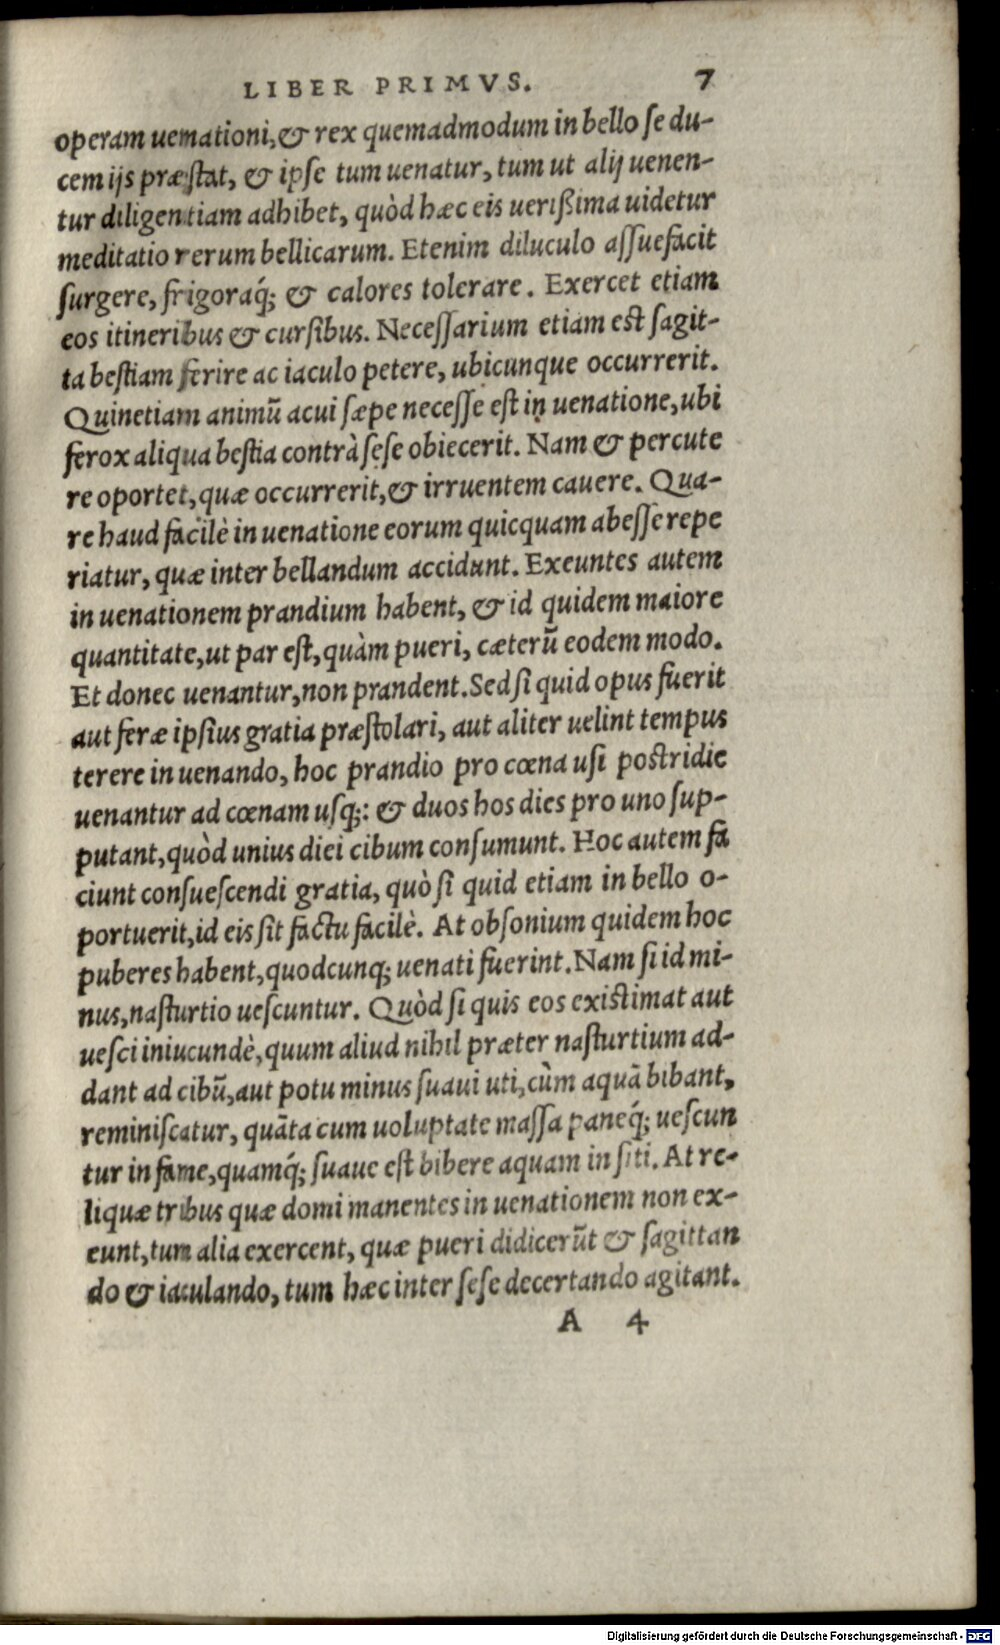 LIBER PRIMVS. 7
operam uemationi, & rex quemadmodum in bello se du-
cem ijs præstat, & ipse tum uenatur, tum ut alij uenen-
tur diligentiam adhibet, quòd hæc eis uerißima uidetur
meditatio rerum bellicarum. Etenim diluculo assuefacit
surgere, frigoraq́; & calores tolerare. Exercet etiam
eos itineribus & cursibus. Necessarium etiam est sagit-
ta bestiam ferire ac iaculo petere, ubicunque occurrerit.
Quinetiam animũ acui sæpe necesse est in uenatione, ubi
ferox aliqua bestia contrà sese obiecerit. Nam & percute
re oportet, quæ occurrerit, & irruentem cauere. Qua-
re haud facilè in uenatione eorum quicquam abesse repe
riatur, quæ inter bellandum accidunt. Exeuntes autem
in uenationem prandium habent, & id quidem maiore
quantitate, ut par est, quàm pueri, cæterũ eodem modo.
Et donec uenantur, non prandent. Sed si quid opus fuerit
aut feræ ipsius gratia præstolari, aut aliter uelint tempus
terere in uenando, hoc prandio pro cœna usi postridie
uenantur ad cœnam usq;: & duos hos dies pro uno sup-
putant, quòd unius diei cibum consumunt. Hoc autem fa
ciunt consuescendi gratia, quò si quid etiam in bello o-
portuerit, id eis sit factu facilè. At obsonium quidem hoc
puberes habent, quodcunq; uenati fuerint. Nam si id mi-
nus, nasturtio uescuntur. Quòd si quis eos existimat aut
uesci iniucundè, quum aliud nihil præter nasturtium ad-
dant ad cibũ, aut potu minus suaui uti, cùm aquã bibant,
reminiscatur, quãta cum uoluptate massa paneq́; uescun
tur in fame, quamq́; suaue est bibere aquam in siti. At re-
liquæ tribus quæ domi manentes in uenationem non ex-
eunt, tum alia exercent, quæ pueri didicerũt & sagittan
do & iaculando, tum hæc inter sese decertando agitant.
A 4
Digitalisierung gefördert durch die Deutsche Forschungsgemeinschaft - DFG